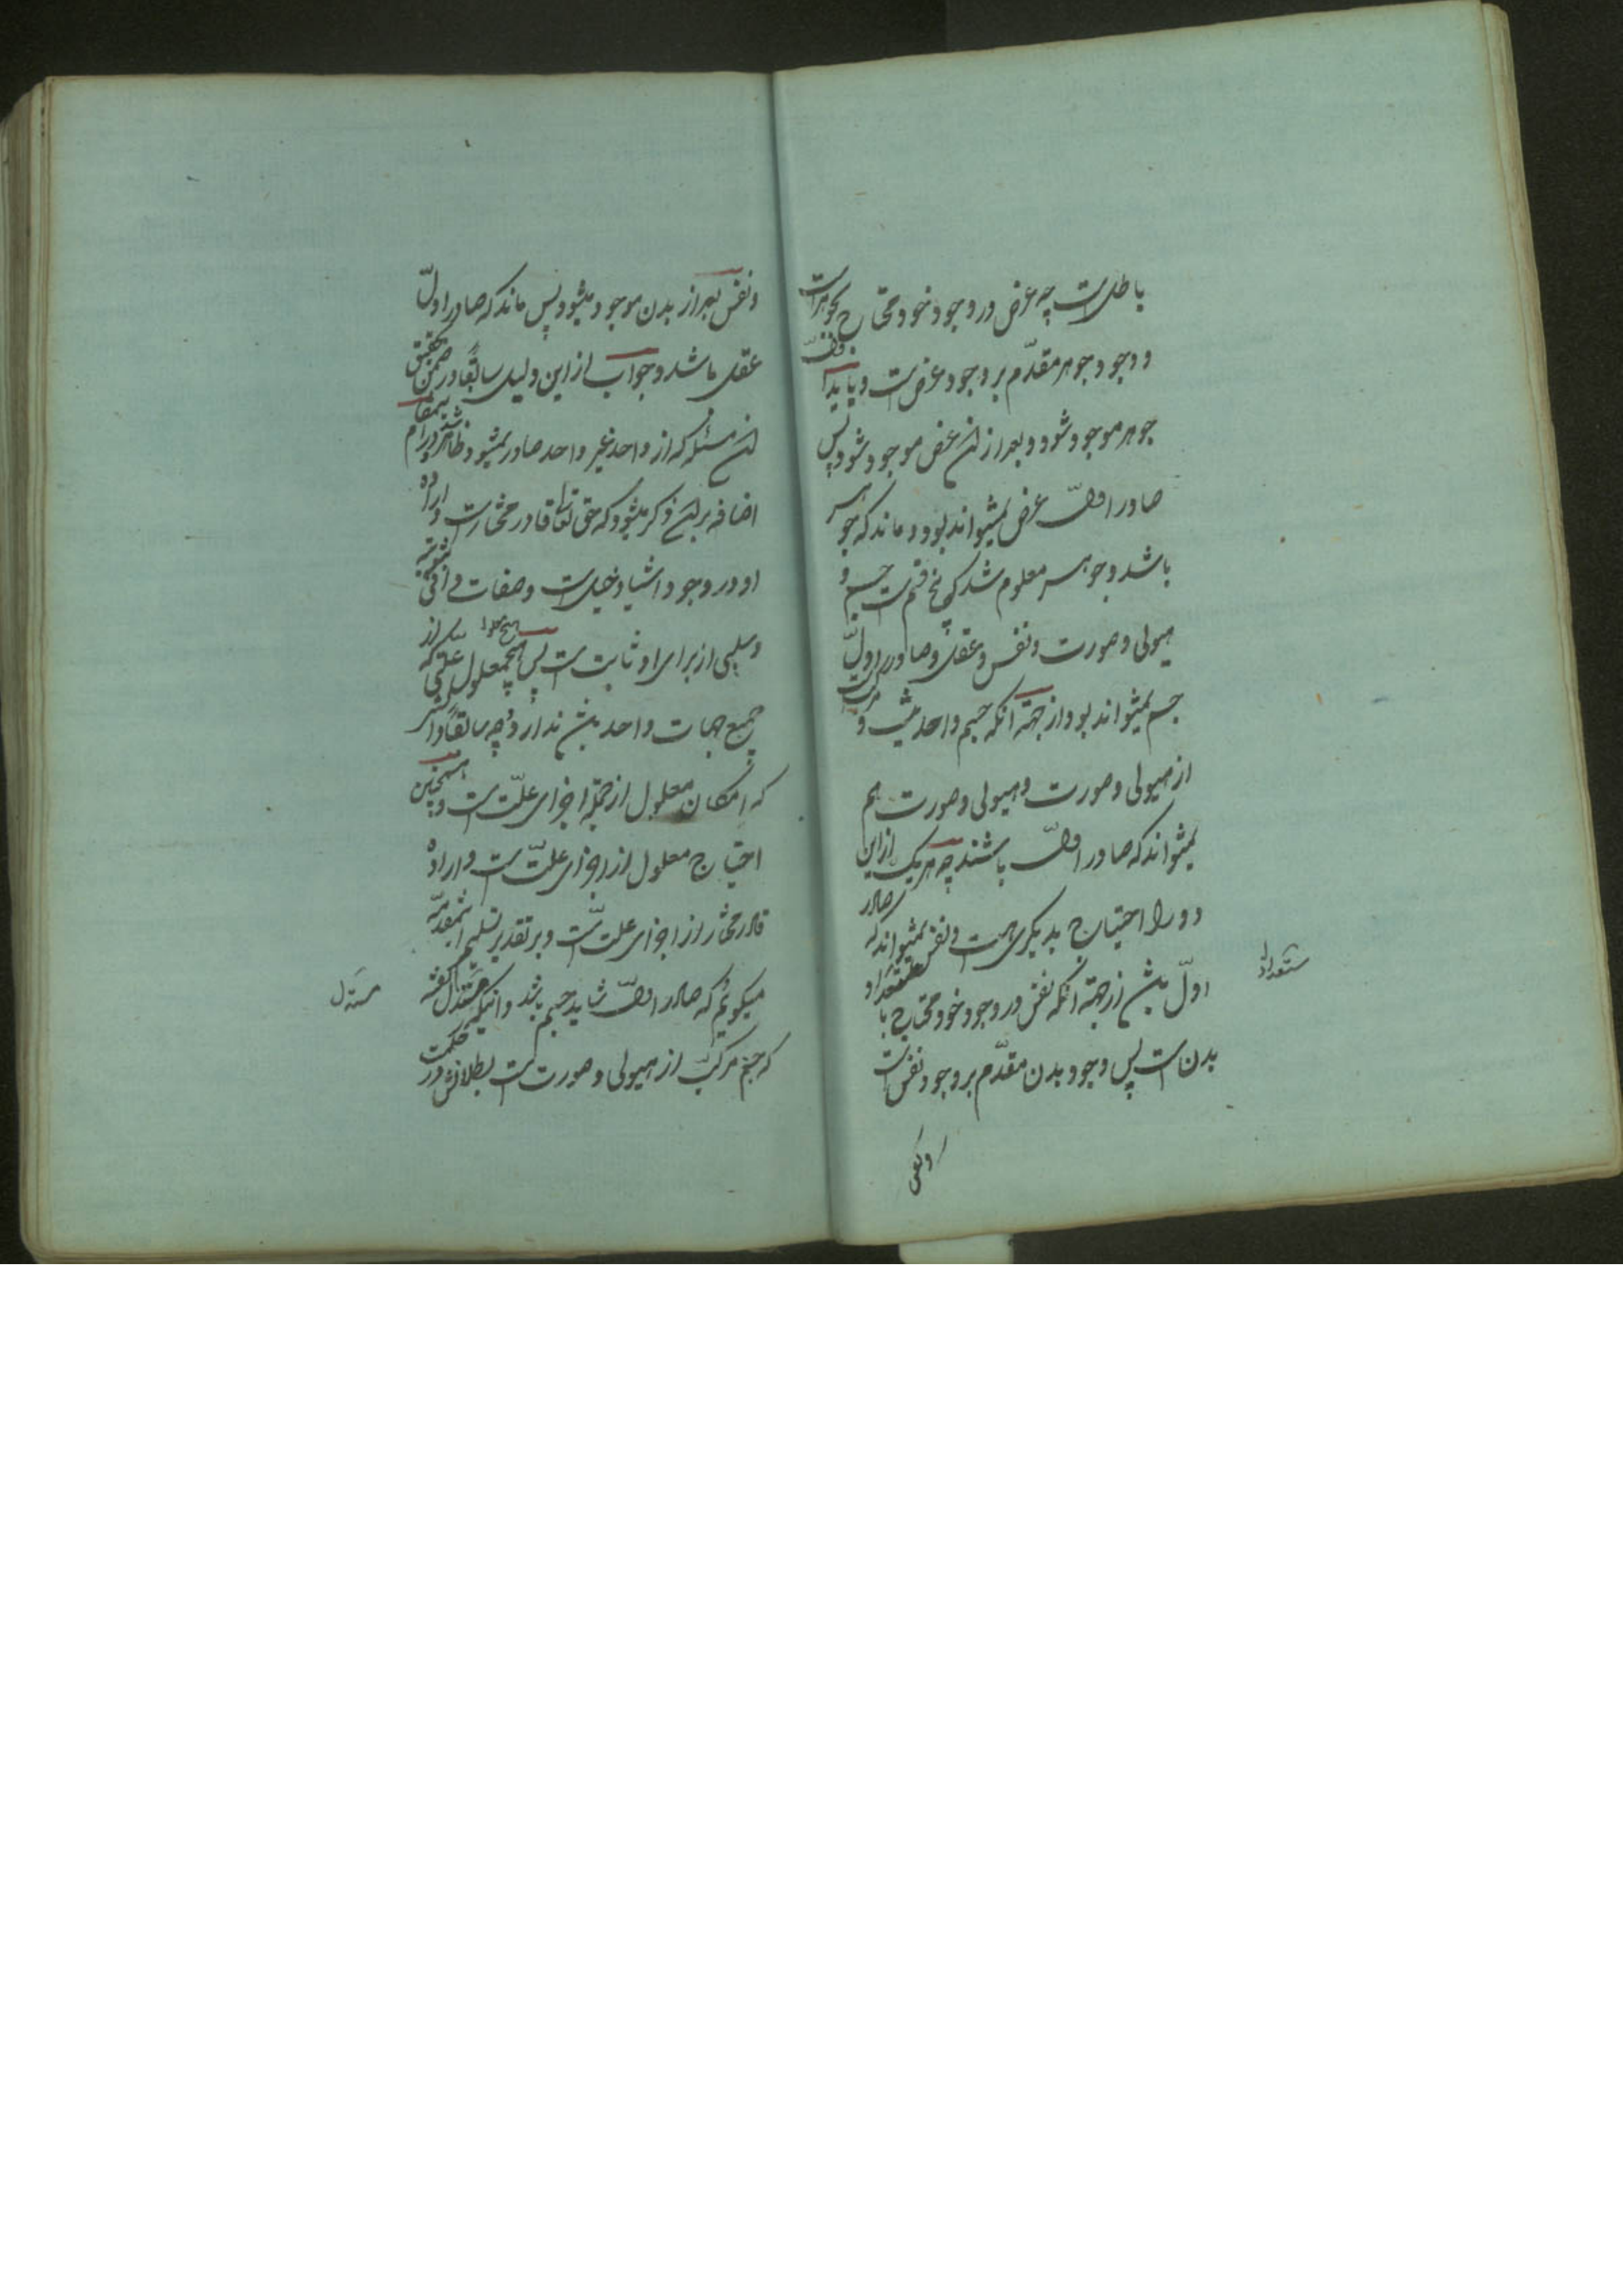 باطلست چه عرض در وجود خود محتاج بجوهر است
و وجود جوهر مقدّم بر وجود عرض است و باید اوّلا
جوهر موجود شود و بعد از ان عرض موجود شود پس
صادر اوّل عرض نمیتواند بود و ماند که جوهر
باشد و جوهر معلوم شد که پنج قسم است جسم و
هیولی و صورت و نفس و عقل و صادر اوّل
جسم نمیتواند بود از جهة انکه جسم واحد نیست و مرکب است
از هیولی و صورت و هیولی و صورت هم
نمیتواند که صادر اوّل باشند چه هر یک از این
دو را احتیاج بدیکری هست و نفس نمیتواند که صادر
اوّل باشد از جهة انکه نفس در وجود خود محتاج با استعداد
استعداد
بدن است پس وجود بدن مقدّم بر وجود نفس است
و نفس
و نفس بعد از بدن موجود میشود پس ماند که صادر اوّل
عقل باشد و جواب از این دلیل سابقًا در ضمن تحقیق
ان مسئله که از واحد غیر واحد صادر نمیشود ظاهر شد و در این مقام
اضافه بر ان ذکر میشود که حق تعالی قادر مختار است و اراده
او در وجود اشیا دخیل است و صفات واقعی ثبوتیه
و سلبی از برای او ثابت است پس هیچ معلول علّتی که از
هیچ معلول
جمیع جهات واحد باشد ندارد و چه سابقًا دانستی
که امکان معلول از جمله اجزای علّت است و همچنین
احتیاج معلول از اجزای علّت است و اراده
قادر مختار از اجزای علت است و بر تقدیر تسلیم این مقدمه
میکوئیم که صادر اوّل شاید جسم باشد و انکه مستدل کفته
مستدل
که جسم مرکب از هیولی و صورت است بطلانش در حکمت